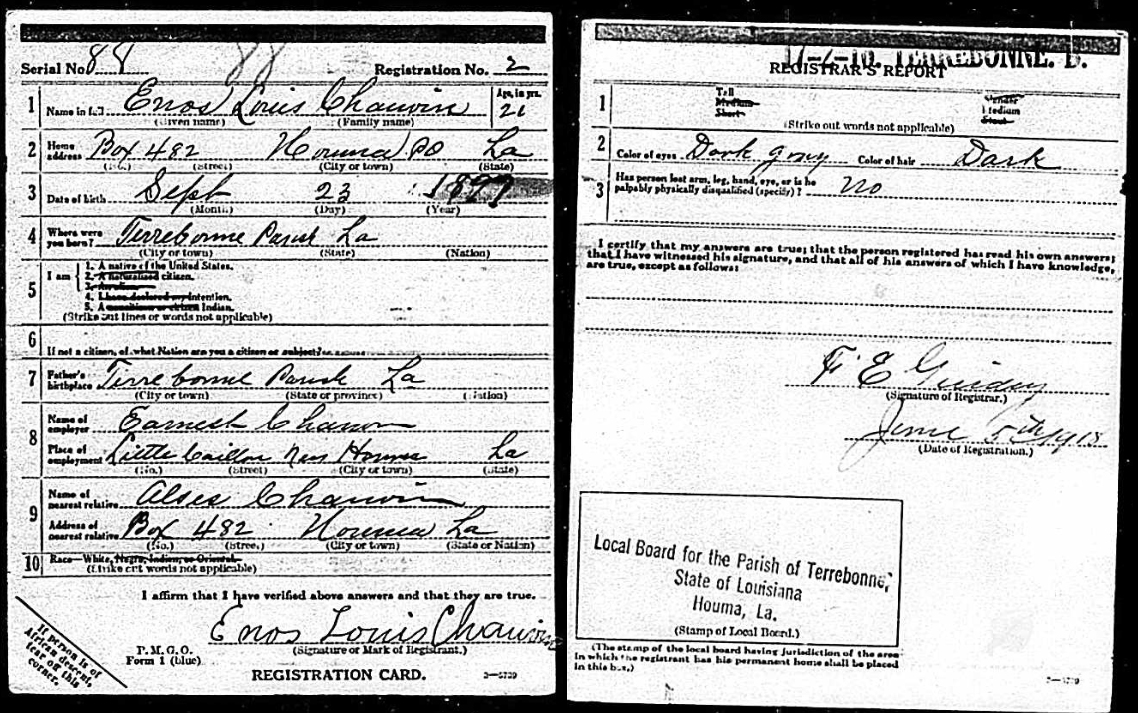 Serial No. 88 88 Registration No. 2
1 Name in full Enos Louis Chauvin Age, in yrs. 21
(Given name) (Family name)
2 Home address Box 482 Houma PO La
(No.) (Street) (City or town) (State)
3 Date of birth Sept 23 1897
(Month) (Day) (Year)
4 Where were you born? Terrebonne Parish La
(City or town) (State) (Nation)
5 I am
1. A native of the United States.
2. A naturalized citizen.
3. An alien.
4. I have declared my intention.
5. A noncitizen or citizen Indian.
(Strike out lines or words not applicable)
6 If not a citizen, of what Nation are you a citizen or subject?
7 Father's birthplace Terrebonne Parish La
(City or town) (State or province) (Nation)
8 Name of employer Earnest Chauvin
Place of employment Little Caillou Near Houma La
(No.) (Street) (City or town) (State)
9 Name of nearest relative Chauvin
Address of nearest relative Box 482 Houma La
(No.) (Street) (City or town) (State or Nation)
10 Race—White, Negro, Indian, or Oriental.
(Strike out words not applicable)
I affirm that I have verified above answers and that they are true.
Enos Louis Chauvin
(Signature or Mark of Registrant.)
P. M. G. O.
Form 1 (blue)
REGISTRATION CARD.
If person is of
African descent,
tear off this
corner.
TERREBONNE.
REGISTRAR'S REPORT
1 Tall Slender
Medium Medium
Short Stout
(Strike out words not applicable)
2 Color of eyes Dark gray Color of hair Dark
3 Has person lost arm, leg, hand, eye, or is he
palpably physically disqualified (specify)? no
I certify that my answers are true; that the person registered has read his own answers;
that I have witnessed his signature, and that all of his answers of which I have knowledge,
are true, except as follows:
F E Guidry
(Signature of Registrar.)
June 5th 1918
(Date of Registration.)
Local Board for the Parish of Terrebonne,
State of Louisiana
Houma, La.
(Stamp of Local Board.)
(The stamp of the local board having jurisdiction of the area
in which the registrant has his permanent home shall be placed
in this box.)